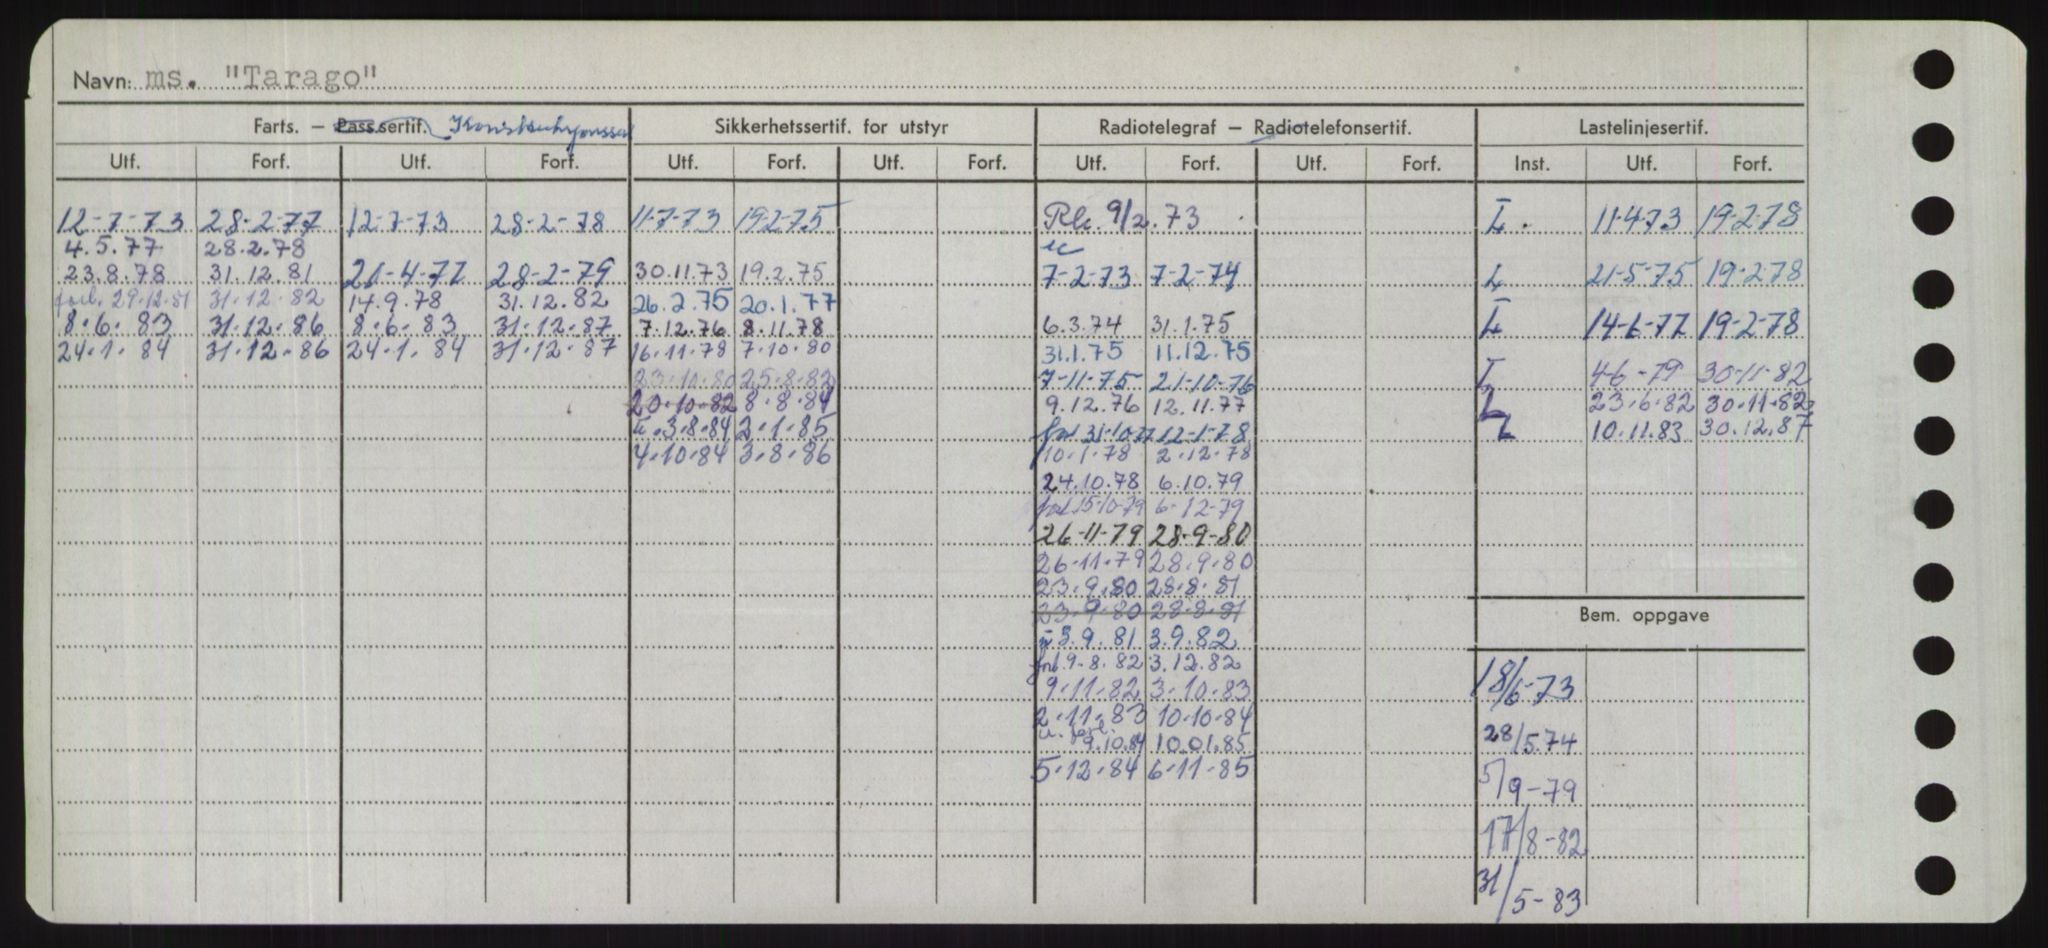 Navn: ms. "Tarago"
Farts. – Passertif. Sikkerhetssertif. for utstyr Radiotelegraf – Radiotelefonsertif. Lastelinjesertif.
Utf. Forf. Utf. Forf. Utf. Forf. Utf. Forf. Utf. Forf. Utf. Forf. Inst. Utf. Forf.
12-7-73 28-2-77 12-7-73 28-2-78 11-7-73 19-2-75 9/2.73 I. 11-4-73 19-2-78
4.5.77 28.2.78
23.8.78 31.12.81 21-4-77 28-2-79 30.11.73 19.2.75 7-2-73 7-2-74 21-5-75 19-2-78
forl. 29.12.81 31.12.82 14.9.78 31.12.82 26.2.75 20.1.77
8.6.83 31.12.86 8.6.83 31.12.87 7.12.76 8.11.78 6.3.74 31.1.75 I 14-6-77 19-2-78
24.1.84 31.12.86 24.1.84 31.12.87 16.11.78 7.10.80 31.1.75 11.12.75
23.10.80 25.8.82 7-11-75 21-10-76 I 4-6-79 30-11-82
20.10.82 8.8.84 9.12.76 12.11.77 23.6.82 30.11.82
3.8.84 2.1.85 forl 31-10-77 12-1-78 10.11.83 30.12.87
4.10.84 3.8.86 10.1.78 2.12.78
24.10.78 6.10.79
forl 15-10-79 6-12-79
26-11-79 28-9-80
26.11.79 28.9.80
23.9.80 28.8.81
23.9.80 28.8.81 Bem. oppgave
3.9.81 3.9.82
forl. 9.8.82 3.12.82
9.11.82 3.10.83 18/6-73
2.11.83 10.10.84
forl. 9.10.84 10.01.85 28/5.74
5.12.84 6.11.85
5/9-79
17/8-82
31/5-83